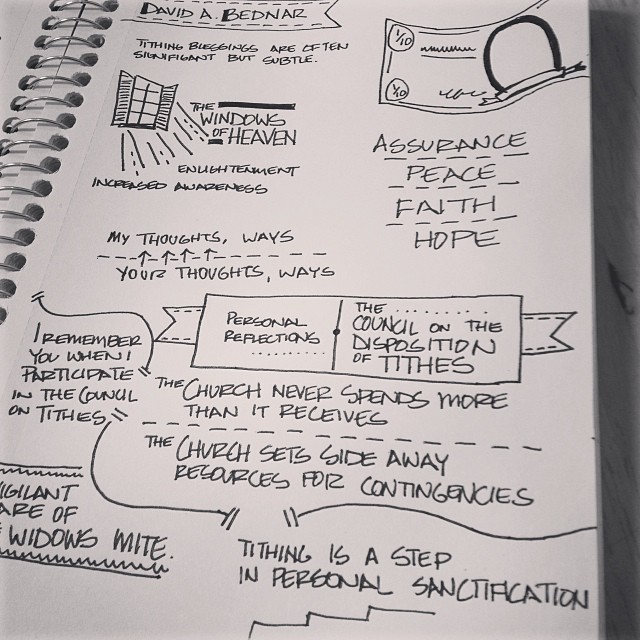 DAVID A. BEDNAR
TITHING BLESSINGS ARE OFTEN
SIGNIFIGANT BUT SUBTLE.
THE
WINDOWS
OF HEAVEN
ENLIGHTENMENT
INCREASED AWARENESS
1/10
1/10
ASSURANCE
PEACE
FAITH
HOPE
MY THOUGHTS, WAYS
YOUR THOUGHTS, WAYS
PERSONAL
REFLECTIONS
THE
COUNCIL ON THE
DISPOSITION
OF TITHES
"I REMEMBER
YOU WHEN I
PARTICIPATE
IN THE COUNCIL
ON TITHES"
THE CHURCH NEVER SPENDS MORE
THAN IT RECEIVES
THE CHURCH SETS SIDE AWAY
RESOURCES FOR CONTINGENCIES
IGILANT
ARE OF
WIDOWS MITE.
TITHING IS A STEP
IN PERSONAL SANCTIFICATION